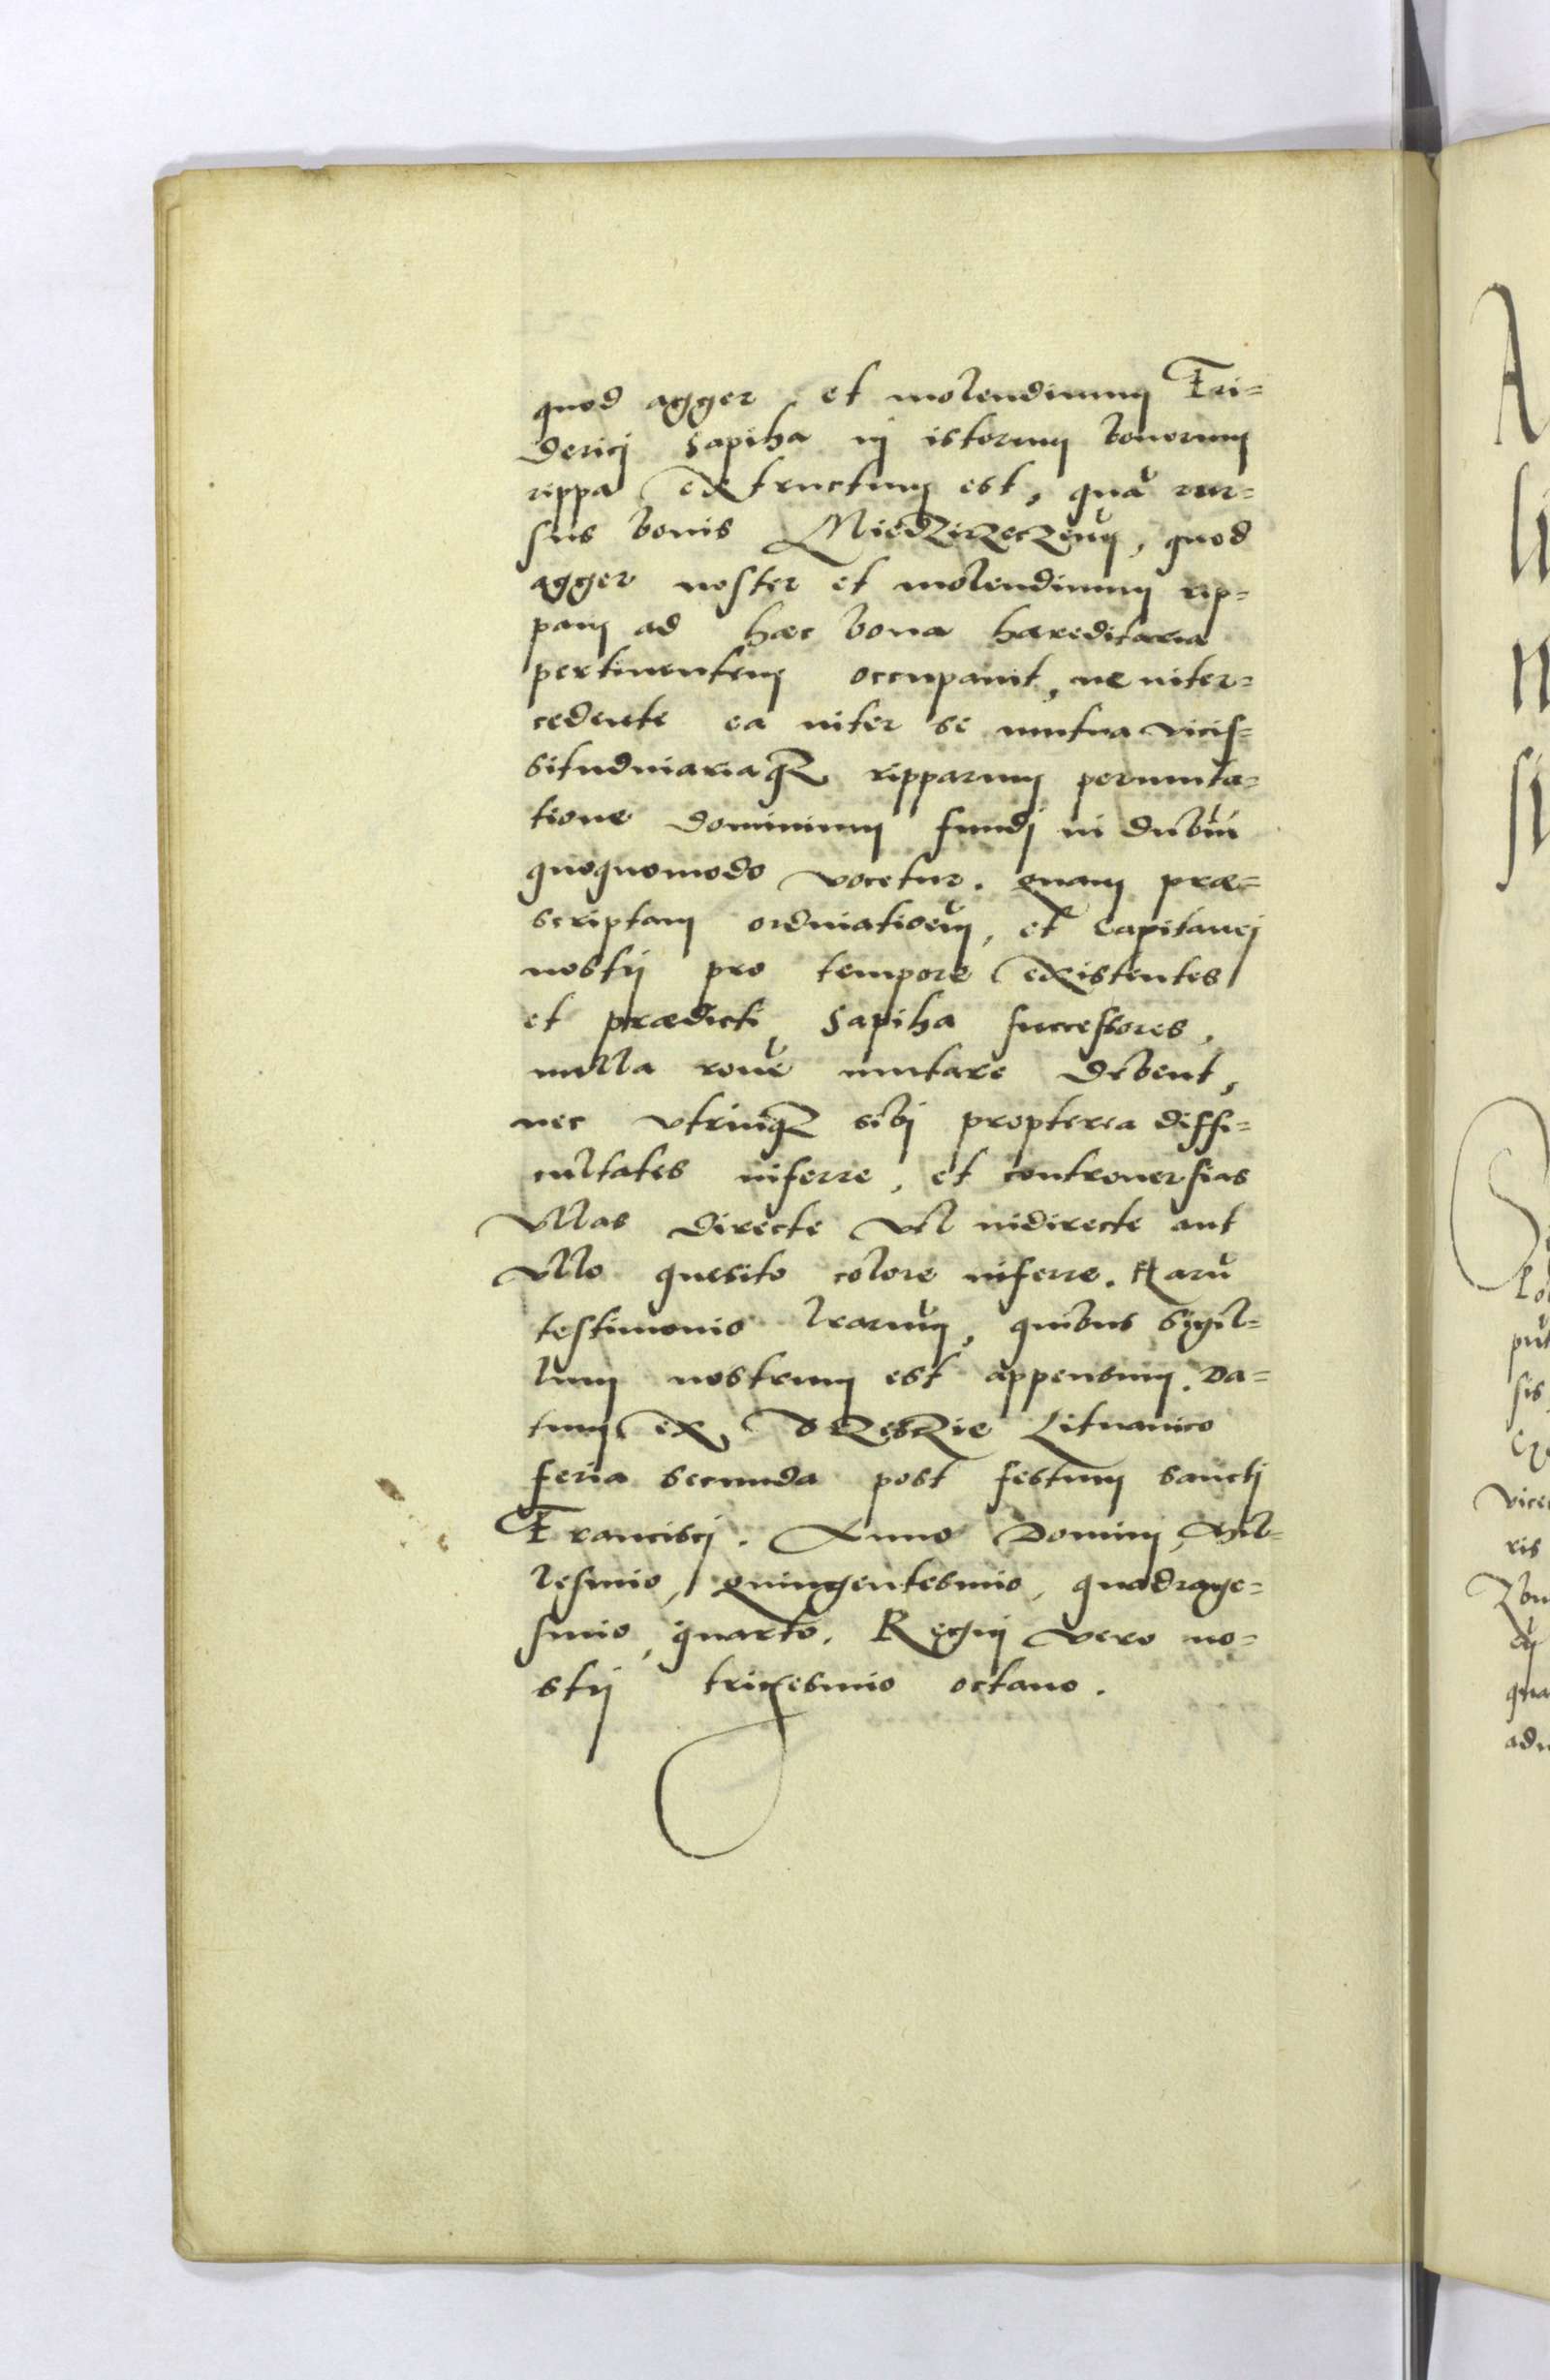 quod agger, et molendinum Fri=
dericj Sapiha in istorum bonorum
rippa extructum est, quā rur=
sus bonis Miedzirzeczen̄, quod
agger noster et molendinum rip=
pam ad haec bona haereditaria
pertinentem occupauit, ne inter=
cedente ea inter se mutua vicis=
situdinariaq3 ripparum permuta=
tione dominium fundj in dubiū
quoquomodo vocetur. Quam prae=
scriptam ordinatioēm, et Capitanej
nostrj pro tempore existentes
et praedicti, Sapiha successores,
nulla rōne mutare debent,
nec vtrinq3 sibj propterea diffi=
cultates inferre, et controuersias
vllas directe vel indirecte aut
vllo quesito colore inferre. Harū
testimonio lrārum, quibus sigil=
lum nostrum est appensum. Da=
tum ex Brzesczie Lituanico
feria secunda post festum sanctj
Franciscj. Anno Domini, Mil=
lesimo, Quingentesimo, quadrage=
simo, quarto. Regnj vero no=
strj trigesimo octauo.
A
li
n
si
S
lo
put
sis
ex
vice
ris
qua
adu